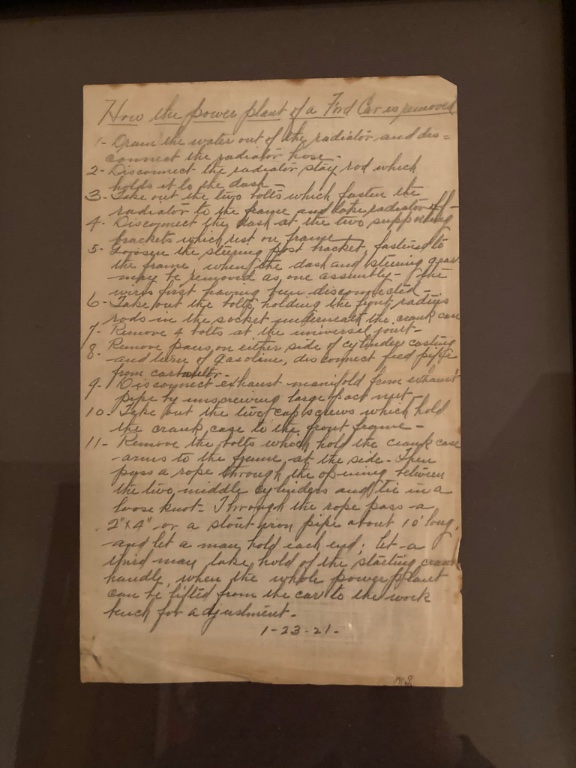 How the power plant of a Ford Car is removed
1- Drain the water out of the radiator and dis=
connect the radiator hose -
2- Disconnect the radiator stay rod which
holds it to the dash -
3- Take out the two bolts which fasten the
radiator to the frame and take radiator off -
4. Disconnect the dash at the two supporting
brackets which rest on frame
5- Loosen the steering post bracket, fastened to
the frame, when the dash and steering gear
may be removed as one assembly - the
wires first having been disconnected -
6- Take out the bolts holding the front radius
rods in the socket underneath the crank case
7- Remove 4 bolts at the universal joint -
8. Remove pans on either side of cylinder casting
and turn off gasoline, disconnect feed pipe
from
9. Disconnect exhaust manifold from exhaust
pipe by unscrewing large nut -
10- Take out the two cap screws which hold
the crank case to the front frame -
11- Remove the bolts which hold the crank case
arms to the frame at the side. Then
pass a rope through the opening between
the two middle cylinders and tie in a
loose knot - Through the rope pass a
2"x4" or a stout iron pipe about 10' long,
and let a man hold each end; let a
third man take hold of the starting crank
handle, when the whole power plant
can be lifted from the car to the work
bench for adjustment -
1-23-21-